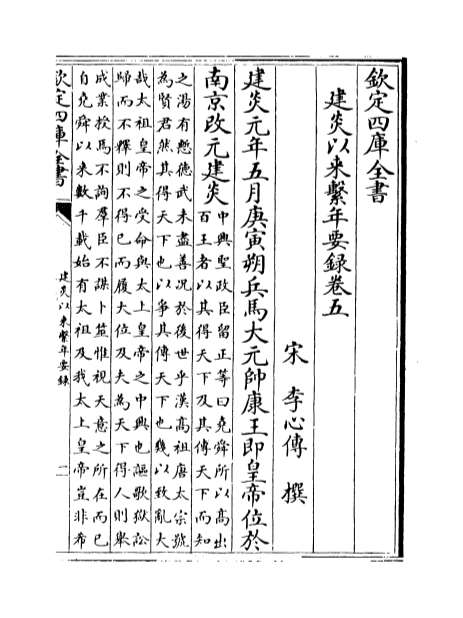 欽定四庫全書
建炎以來繫年要錄卷五
宋 李心傳 撰
建炎元年五月庚寅朔兵馬大元帥康王即皇帝位於
南京改元建炎
中興聖政臣留正等曰堯舜所以高出
百王者以其得天下及其傳天下而知
之湯有慙德武未盡善況於後世乎漢高祖唐太宗號
為賢君然其得天下也以爭其傳天下也幾以致亂大
哉太祖皇帝之受命與太上皇帝之中興也謳歌獄訟
歸而不釋則不得已而履大位及夫為天下得人則舉
成業授焉不詢羣臣不謀卜筮惟視天意之所在而已
自堯舜以來數千載始有太祖及我太上皇帝豈非希
欽定四庫全書
建炎以來繫年要錄
一